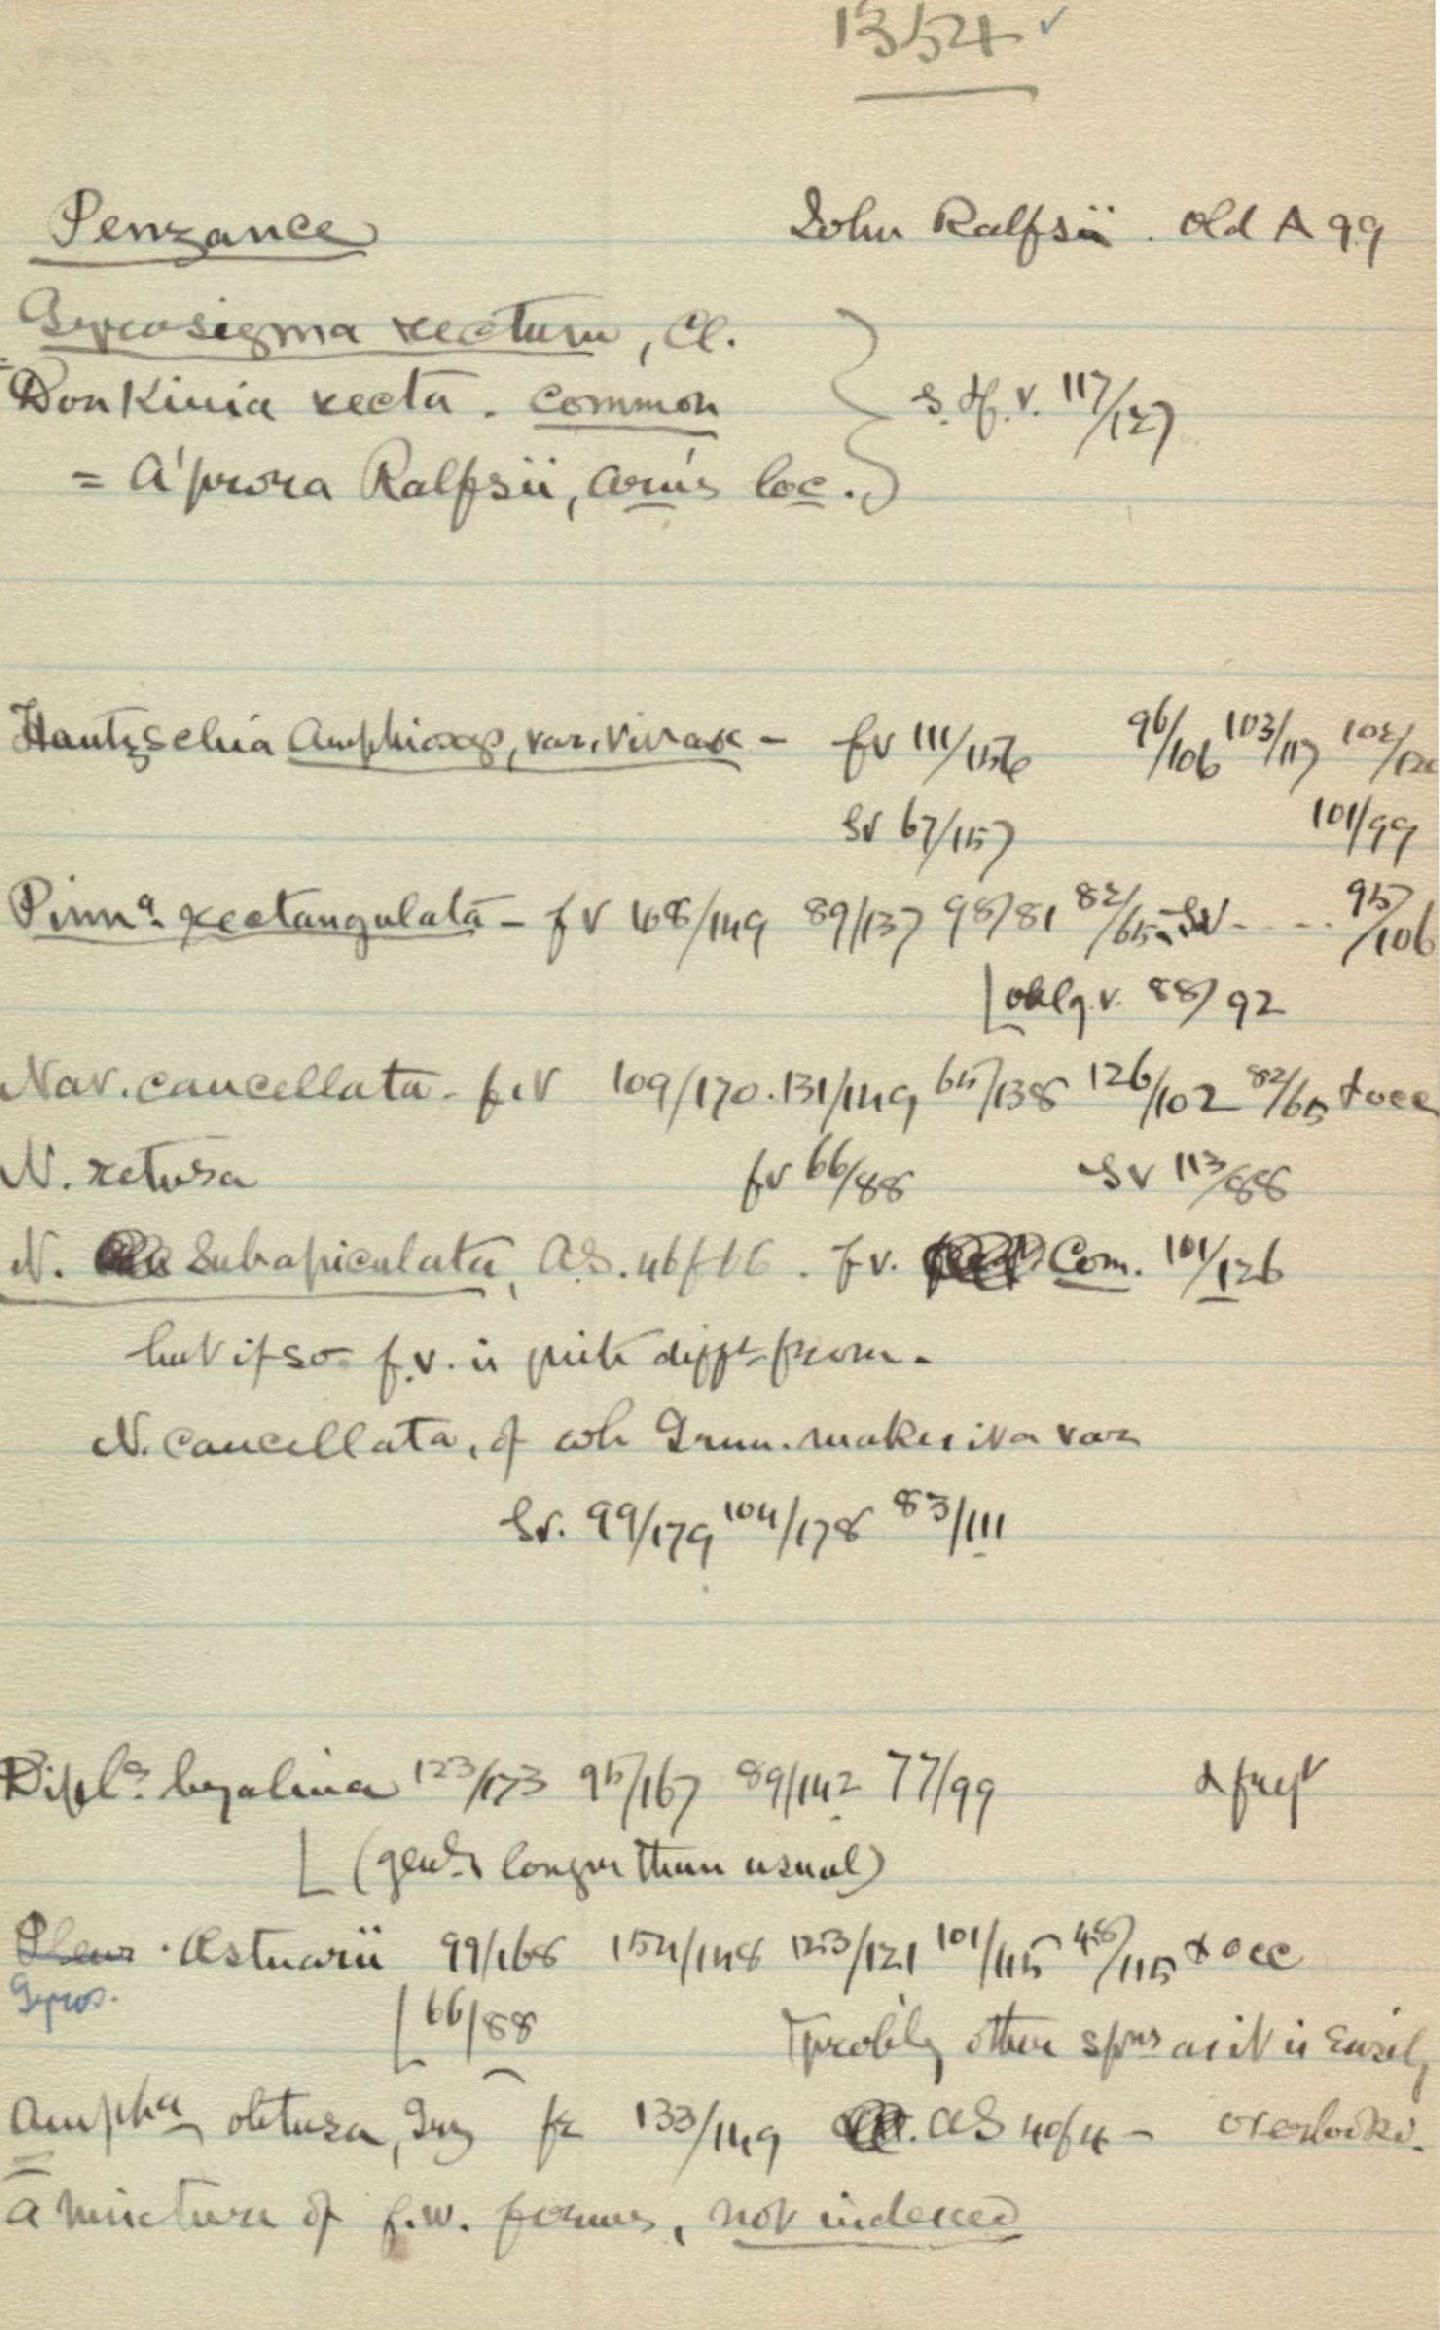 1354 ✓
Penzance John Ralfsii. Old A 99
Gyrosigma rectum, Cl.
= Donkinia recta. common s. & f. v. 117/127
= A'prora Ralfsii, loc.
Hantzschia Amphioxys, var. vivax - fv 111/156 96/106 103/117
sv 67/157 101/99
Pinna. rectangulata - fv 168/149 89/137 98/81 82/65 sv - - - 95/106
oblq. v. 88/92
Nav. cancellata - f.v 109/170. 131/149 65/138 126/102 82/65 & occ
N. retusa fv 66/88 sv 113/88
N. Subapiculata, A.S. 46f46. f.v. Com. 101/126
but if so f.v. is quite difft. from.
N. cancellata, of wh Grun. makes it a var
Sv. 99/179 104/178 83/111
Dipla. hyalina 123/173 95/167 89/142 77/99 & freqt
(genly longer than usual)
Pleur. Æstuarii 99/168 154/148 123/121 101/115 48/115 & occ
Gyros. 66/88 probbly other spns as it is easily
Ampha obtusa, Grg fr 133/149 AS 40f4 - overlookd.
A mixture of f.w. forms, not indexed